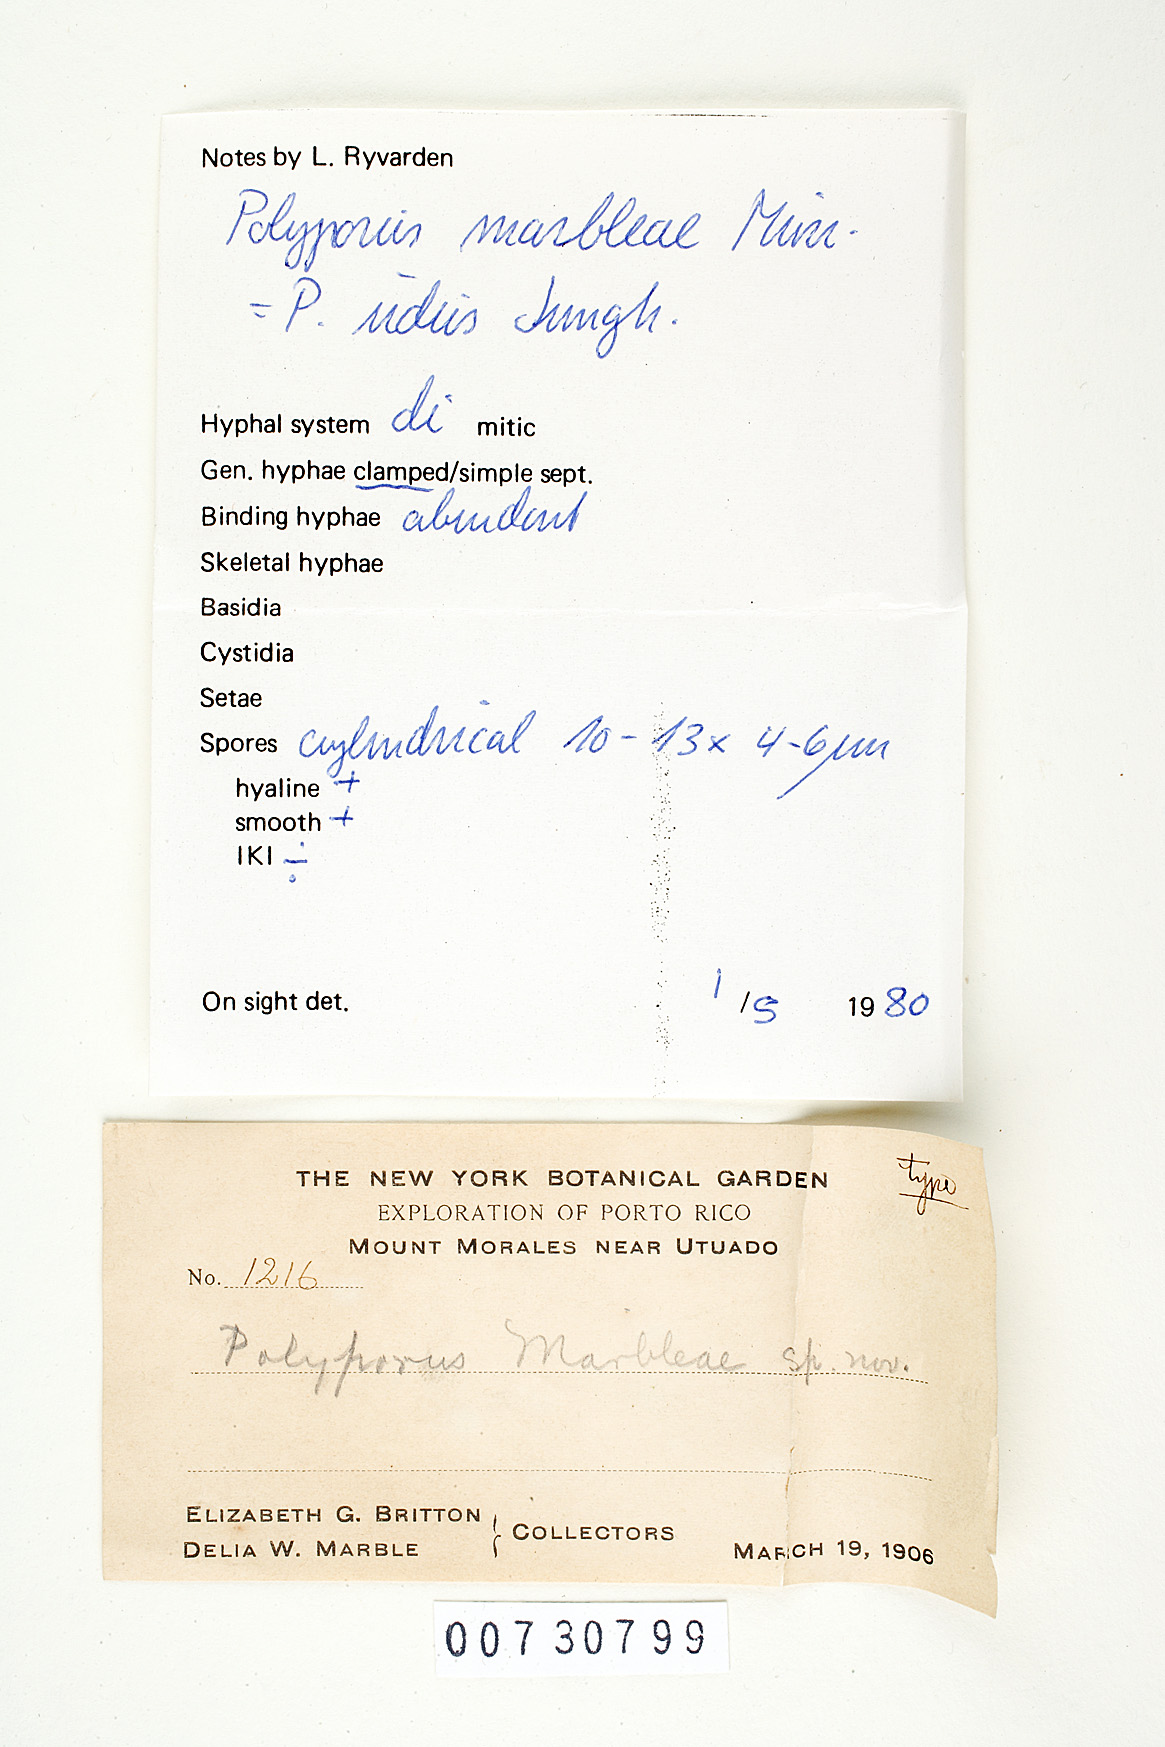 Notes by L. Ryvarden
Polyporus marbleae Murr.
= P. udus Jungh.
Hyphal system di mitic
Gen. hyphae clamped/simple sept.
Binding hyphae abundant
Skeletal hyphae
Basidia
Cystidia
Setae
Spores cylindrical 10-13 x 4-6 μm
hyaline +
smooth +
IKI ÷
On sight det. 1/5 1980
type
THE NEW YORK BOTANICAL GARDEN
EXPLORATION OF PORTO RICO
MOUNT MORALES NEAR UTUADO
No. 1216
Polyporus Marbleae sp. nov.
ELIZABETH G. BRITTON
DELIA W. MARBLE } COLLECTORS
MARCH 19, 1906
00730799